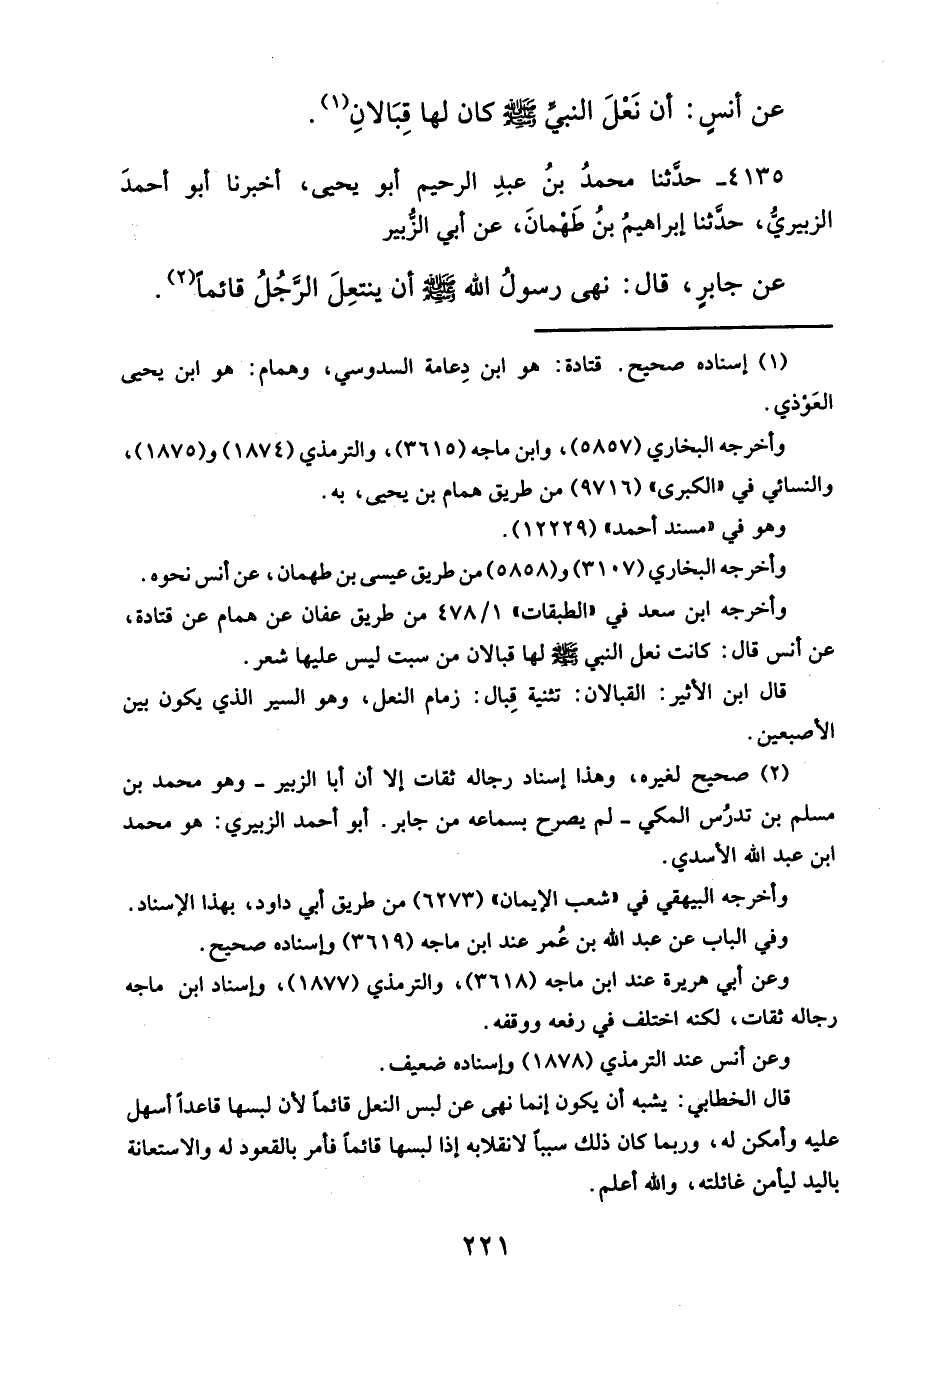 عن أنسٍ: أن نَعْلَ النبيِّ ﷺ كان لها قِبَالانِ(١).
٤١٣٥ـ حدَّثنا محمدُ بنُ عبدِ الرحيم أبو يحيى، أخبرنا أبو أحمدَ
الزبيريُّ، حدَّثنا إبراهيمُ بنُ طَهْمانَ، عن أبي الزُّبير
عن جابرٍ، قال: نهى رسولُ الله ﷺ أن ينتعِلَ الرَّجُلُ قائماً(٢).
(١) إسناده صحيح. قتادة: هو ابن دِعامة السدوسي، وهمام: هو ابن يحيى
العَوْذي.
وأخرجه البخاري (٥٨٥٧)، وابن ماجه (٣٦١٥)، والترمذي (١٨٧٤) و(١٨٧٥)،
والنسائي في «الكبرى» (٩٧١٦) من طريق همام بن يحيى، به.
وهو في «مسند أحمد» (١٢٢٢٩).
وأخرجه البخاري (٣١٠٧) و(٥٨٥٨) من طريق عيسى بن طهمان، عن أنس نحوه.
وأخرجه ابن سعد في «الطبقات» ١/ ٤٧٨ من طريق عفان عن همام عن قتادة،
عن أنس قال: كانت نعل النبي ﷺ لها قبالان من سبت ليس عليها شعر.
قال ابن الأثير: القبالان: تثنية قِبال: زمام النعل، وهو السير الذي يكون بين
الأصبعين.
(٢) صحيح لغيره، وهذا إسناد رجاله ثقات إلا أن أبا الزبير ـ وهو محمد بن
مسلم بن تدرُس المكي ـ لم يصرح بسماعه من جابر. أبو أحمد الزبيري: هو محمد
ابن عبد الله الأسدي.
وأخرجه البيهقي في «شعب الإيمان» (٦٢٧٣) من طريق أبي داود، بهذا الإسناد.
وفي الباب عن عبد الله بن عُمر عند ابن ماجه (٣٦١٩) وإسناده صحيح.
وعن أبي هريرة عند ابن ماجه (٣٦١٨)، والترمذي (١٨٧٧)، وإسناد ابن ماجه
رجاله ثقات، لكنه اختلف في رفعه ووقفه.
وعن أنس عند الترمذي (١٨٧٨) وإسناده ضعيف.
قال الخطابي: يشبه أن يكون إنما نهى عن لبس النعل قائماً لأن لبسها قاعداً أسهل
عليه وأمكن له، وربما كان ذلك سبباً لانقلابه إذا لبسها قائماً فأمر بالقعود له والاستعانة
باليد ليأمن غائلته، والله أعلم.
٢٢١